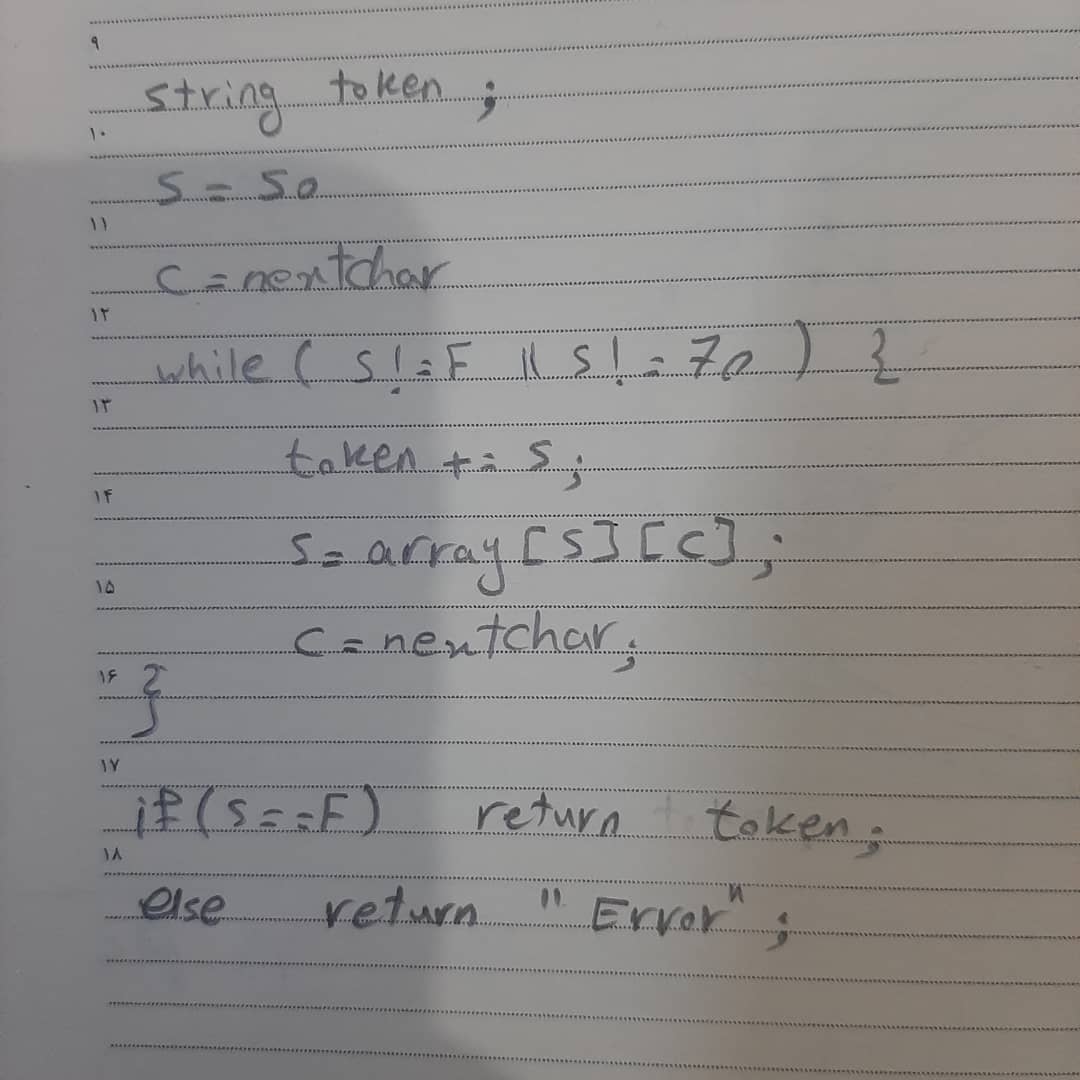 ۹
string token ;
۱۰
S = S0
۱۱
C = nextchar
۱۲
while ( S != F || S != 70 ) {
۱۳
token += S ;
۱۴
S = array [S] [C] ;
۱۵
C = nextchar ;
۱۶
}
۱۷
if (S == F) return token ;
۱۸
else return "Error" ;